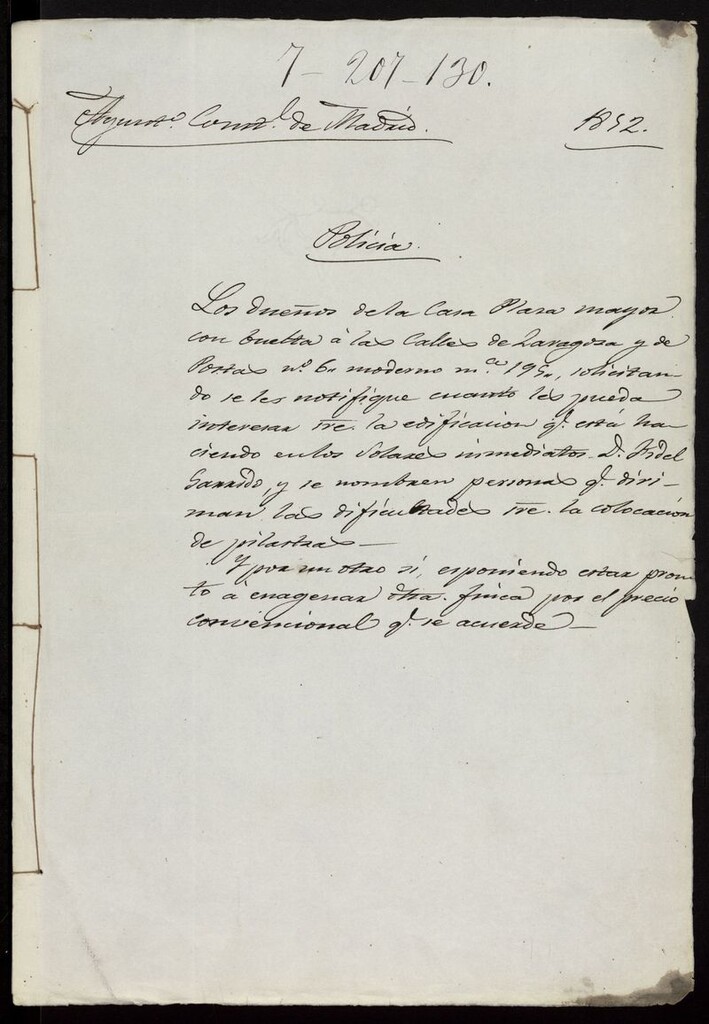 7-207-130.
Ayunto. Conal. de Madrid. 1852.
Policia.
Los dueños de la Casa Plaza mayor
con buelta à las Calles de Zaragoza y de
Postas nº. 6 moderno mª. 195, solicitan
do se les notifique cuanto les pueda
interesar sre. la edificacion q. está ha
ciendo en los Solares inmediatos D. Fidel
Garrido, y se nombren personas q. diri-
man las dificultades sre. la colocación
de pilastras—
Y por un otro sí, esponiendo estar pron
to à enagenar dha. finca por el precio
convencional q. se acuerde—